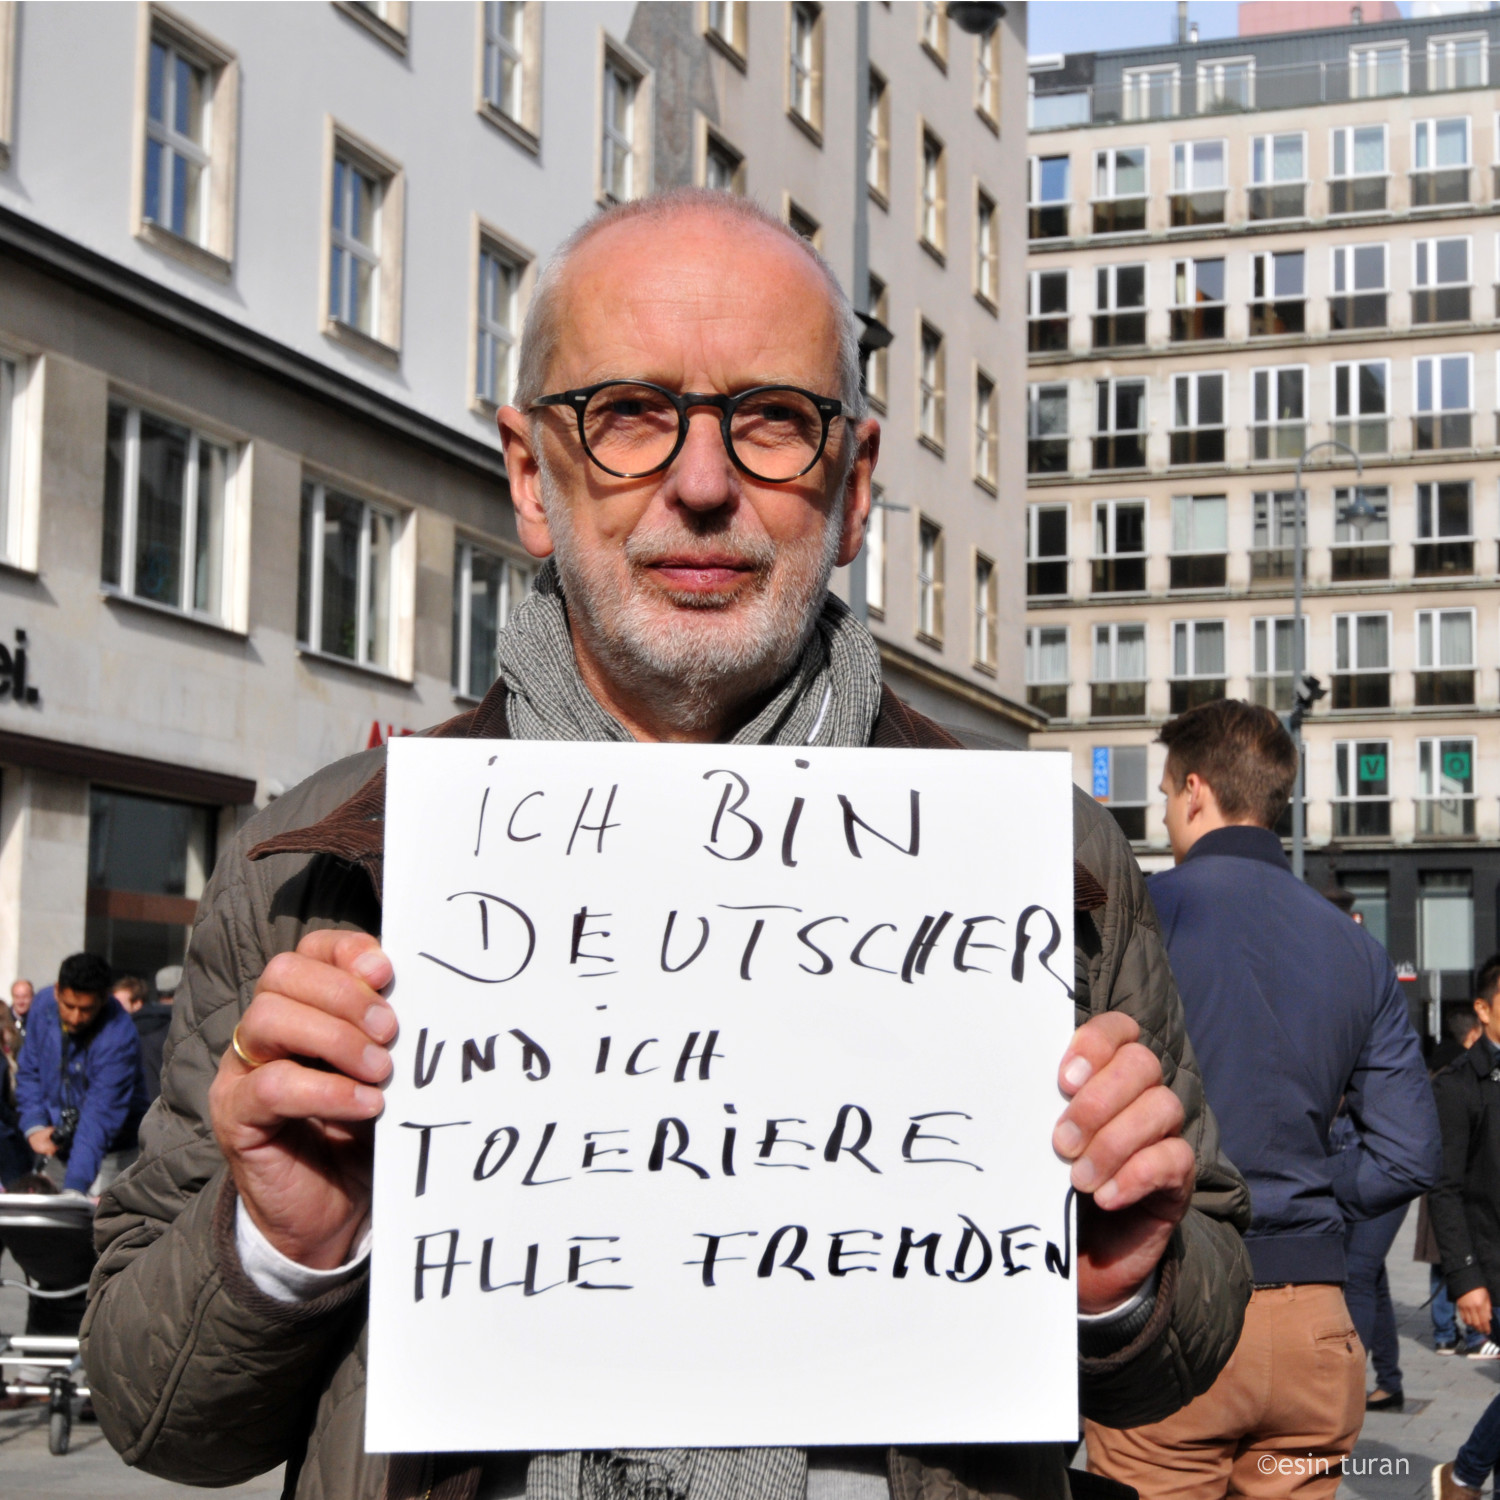 iCH BiN
DEUTSCHER
UND iCH
TOLERiERE
ALLE FREMDEN
ei.
V
O
©esin turan